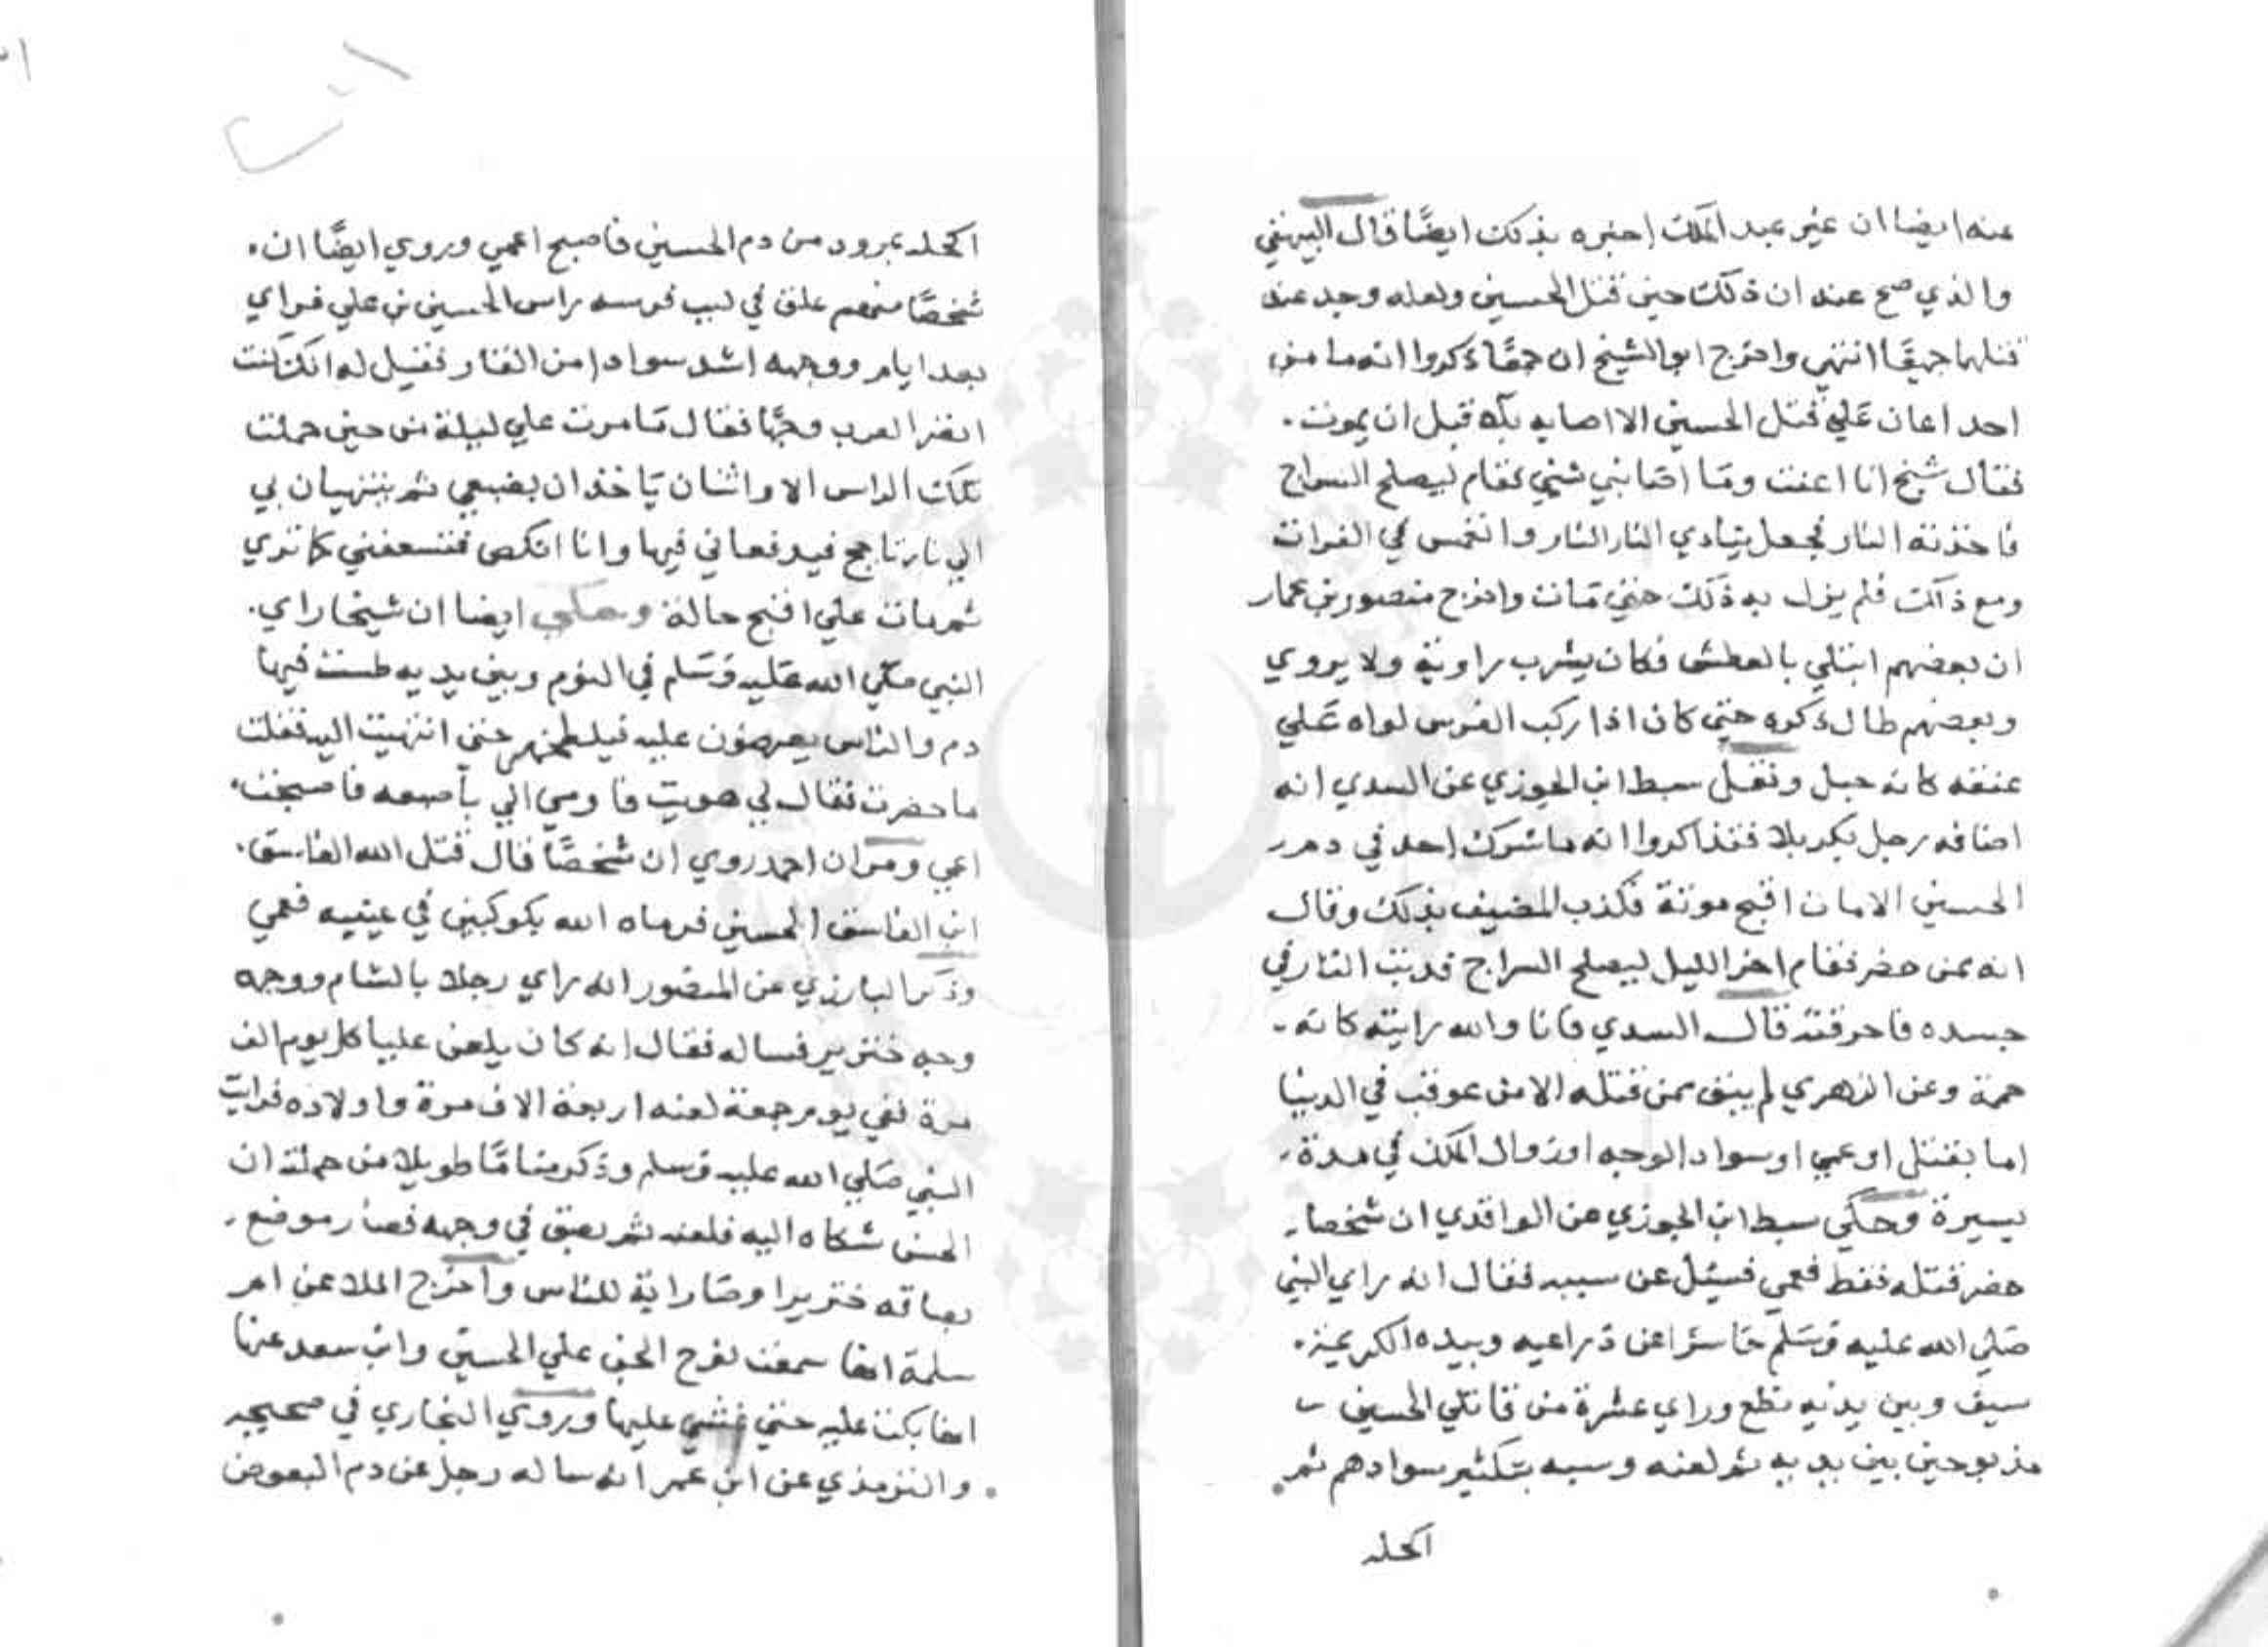 عنه ايضا ان غير عبد الملك اخبره بذلك ايضًا قال البيهقي
والذي صح عنه ان ذلك حين قتل الحسين ولعله وجد عند
قتلهما جميعًا انتهي واخرج ابو الشيخ ان جمعًا ذكروا انه ما من
احد اعان علي قتل الحسين الا اصابه بلاء قبل ان يموت.
فقال شيخ انا اعنت وما اصابني شيئ فقام ليصلح السراج
فاخذته النار فجعل ينادي النار النار وانغمس في الفرات
ومع ذلك فلم يزل به ذلك حتي مات واخرج منصور بن عمار
ان بعضهم ابتلي بالعطش فكان يشرب راوية ولا يروي
وبعضهم طال ذكره حتي كان اذا ركب الفرس لواه علي
عنقه كانه حبل ونقل سبط ابن الجوزي عن السدي انه
اضافه رجل بكربلا فتذاكروا انه ما شرك احد في دم
الحسين الا مات اقبح موتة فكذب المضيف بذلك وقال
انه ممن حضر فقام اخر الليل ليصلح السراج فدبت النار في
جسده فاحرقته قال السدي فانا والله رايته كانه
حممة وعن الزهري لم يبق ممن قتله الا من عوقب في الدنيا
اما بقتل او عمي او سواد الوجه او زوال الملك في مدة
يسيرة وحكي سبط ابن الجوزي عن الواقدي ان شخصا
حضر قتله فقط فعمي فسئل عن سببه فقال انه راي النبي
صلي الله عليه وسلم حاسرا عن ذراعيه وبيده الكريمة.
سيف وبين يديه نطع وراي عشرة من قاتلي الحسين
مذبوحين بين يديه ثم لعنه وسبه بتكثير سوادهم ثم
اكحله
اكحله بمرود من دم الحسين فاصبح اعمي وروي ايضًا ان
شخصًا منهم علق في لبب فرسه راس الحسين بن علي فراي
بعد ايام ووجهه اشد سوادا من القار فقيل له انك كنت
انضر العرب وجهًا فقال ما مرت علي ليلة من حين حملت
تلك الراس الا واثنان ياخذان بضبعي ثم ينتهيان بي
الي نار تاجج فيدفعاني فيها وانا انكص فتسعفني كما تري
ثم مات علي اقبح حالة وحكي ايضا ان شيخا راي.
النبي صلي الله عليه وسلم في النوم وبين يديه طست فيها
دم والناس يعرضون عليه فيلطخهم حتي انتهيت اليه فقلت
ما حضرت فقال لي هويت فاومي الي باصبعه فاصبحت
اعمي ومر ان احمد روي ان شخصًا قال قتل الله الفاسق.
ابن الفاسق الحسين فرماه الله بكوكبين في عينيه فعمي
وذكر البارزي عن المنصور انه راي رجلا بالشام ووجهه
وجه خنزير فساله فقال انه كان يلعن عليا كل يوم الف
مرة ففي يوم جمعة لعنه اربعة الاف مرة واولاده فرايت
النبي صلي الله عليه وسلم وذكر مناما طويلا من جملته ان
الحسن شكاه اليه فلعنه ثم بصق في وجهه فصار موضع
بصاقه خنزيرا وصار اية للناس واخرج الملا عن ام
سلمة انها سمعت نوح الجن علي الحسين وابن سعد عنها
انها بكت عليه حتي غشي عليها وروي البخاري في صحيحه
والترمذي عن ابن عمر انه ساله رجل عن دم البعوض